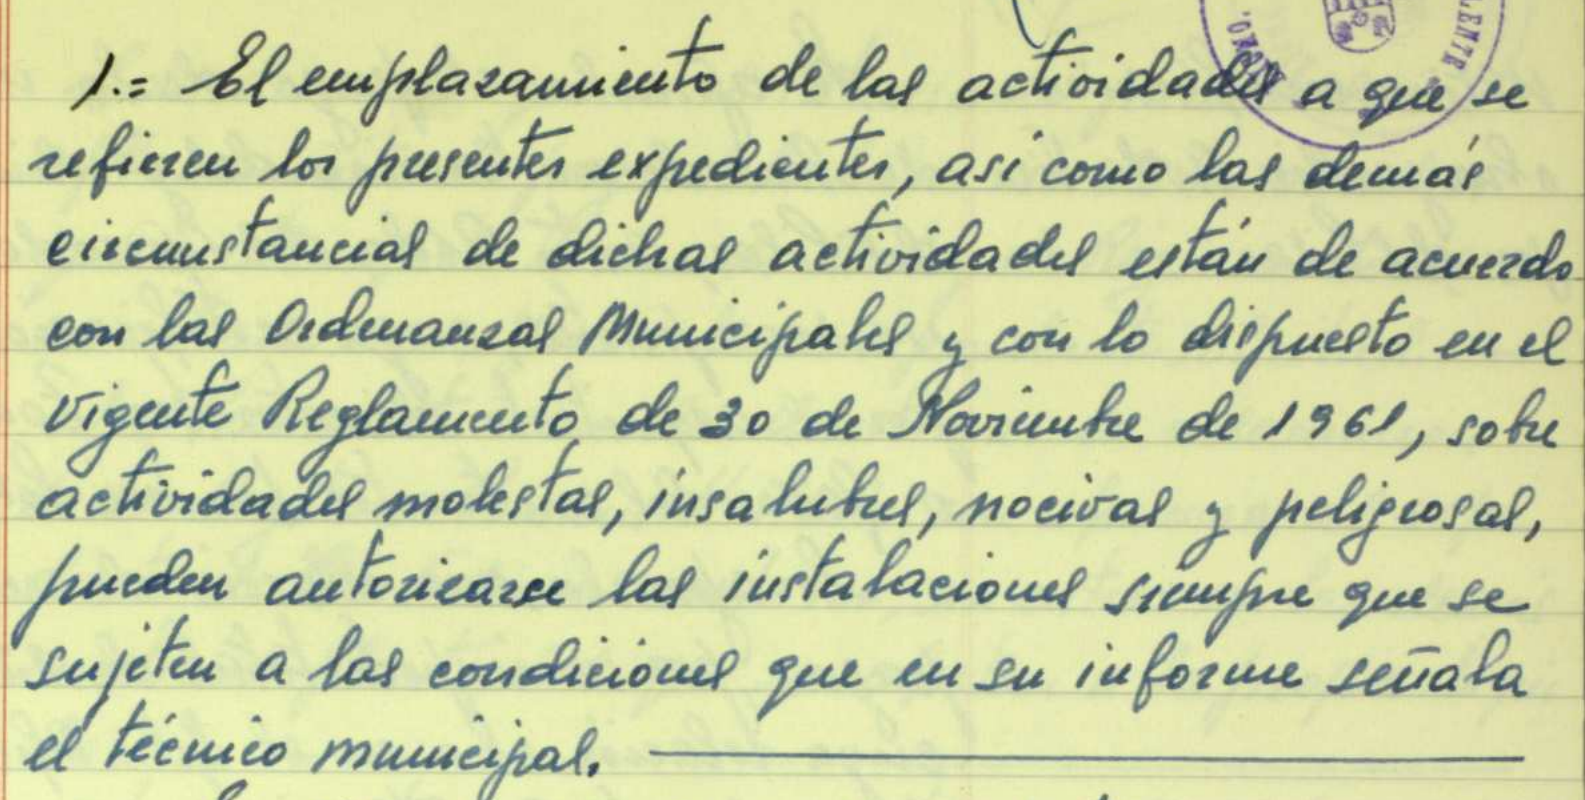 LENTE
1.= El emplazamiento de las actividades a que se
refieren los presentes expedientes, así como las demás
circunstancias de dichas actividades están de acuerdo
con las Ordenanzas Municipales y con lo dispuesto en el
vigente Reglamento de 30 de Noviembre de 1961, sobre
actividades molestas, insalubres, nocivas y peligrosas,
pueden autorizarse las instalaciones siempre que se
sujeten a las condiciones que en su informe señala
el técnico municipal.